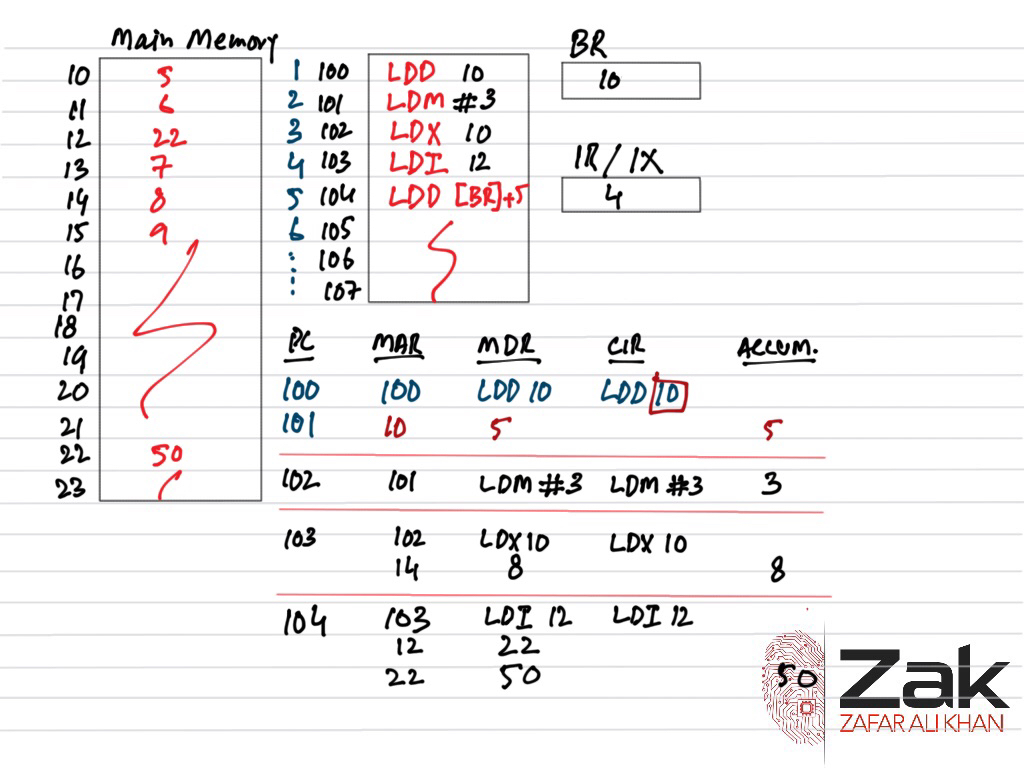 Main Memory
10 5
11 6
12 22
13 7
14 8
15 9
16
17
18
19
20
21
22 50
23
1 100 LDD 10
2 101 LDM #3
3 102 LDX 10
4 103 LDI 12
5 104 LDD [BR]+5
6 105
106
107
BR
10
IR/IX
4
PC MAR MDR CIR ACCUM.
100 100 LDD 10 LDD 10
101 10 5 5
102 101 LDM #3 LDM #3 3
103 102 LDX 10 LDX 10
14 8 8
104 103 LDI 12 LDI 12
12 22
22 50 50
Zak
ZAFAR ALI KHAN